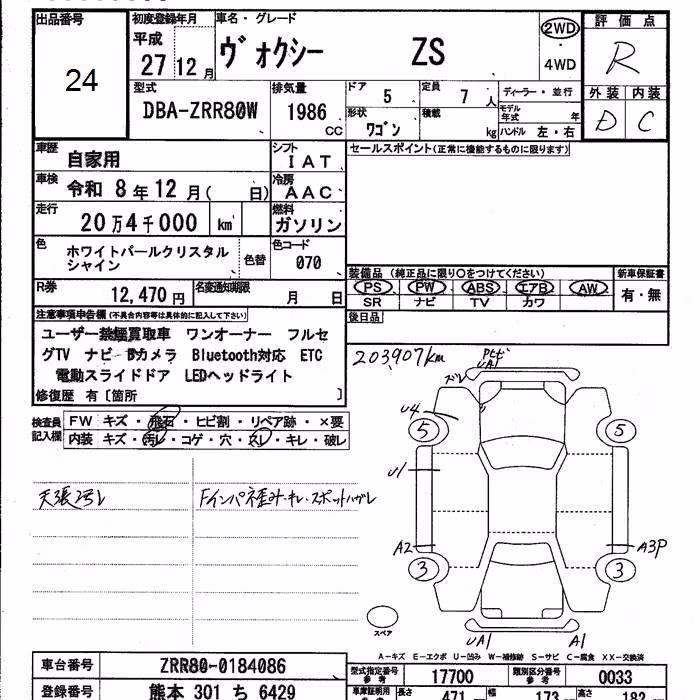 出品番号 初度登録年月 車名・グレード 評価点
24 平成 27 12 月 ヴォクシー ZS 2WD ・ 4WD R
型式 排気量 ドア 5 定員 7 人 ディーラー・並行 外装 内装
DBA-ZRR80W 1986 CC 形状 ワゴン 積載 kg モデル年式 年 ハンドル 左・右 D C
車歴 自家用 シフト IAT セールスポイント(正常に機能するものに限ります)
車検 令和 8 年 12 月 ( 日) 冷房 AAC
走行 20万4千000 km 燃料 ガソリン
色 ホワイトパールクリスタル 色替 色コード
シャイン 070
装備品 (純正品に限り○をつけてください) 新車保証書
PS PW ABS エアB AW 有・無
SR ナビ TV カワ
R券 12,470 円 名変通知期限 月 日
後日品
注意事項申告欄(不具合内容等は具体的に記入して下さい)
ユーザー禁煙買取車 ワンオーナー フルセ
グTV ナビ Bカメラ Bluetooth対応 ETC
電動スライドドア LEDヘッドライト
修復歴 有〔箇所 〕
203907km
検査員記入欄 FW キズ・飛石・ヒビ割・リペア跡・×要
内装 キズ・汚レ・コゲ・穴・スレ・キレ・破レ
天張汚レ Fインパネ歪ミ・キレ・スポットハガレ
ズレ UA1
U4
5 5
U1
A2 A3P
3 3
スペア
UA1 A1
A-キズ E-エクボ U-凹み W-補修跡 S-サビ C-腐食 XX-交換済
車台番号 ZRR80-0184086 型式指定番号 参考 17700 類別区分番号 参考 0033
登録番号 熊本 301 ち 6429 車庫証明用 長さ 471 幅 173 高さ 182